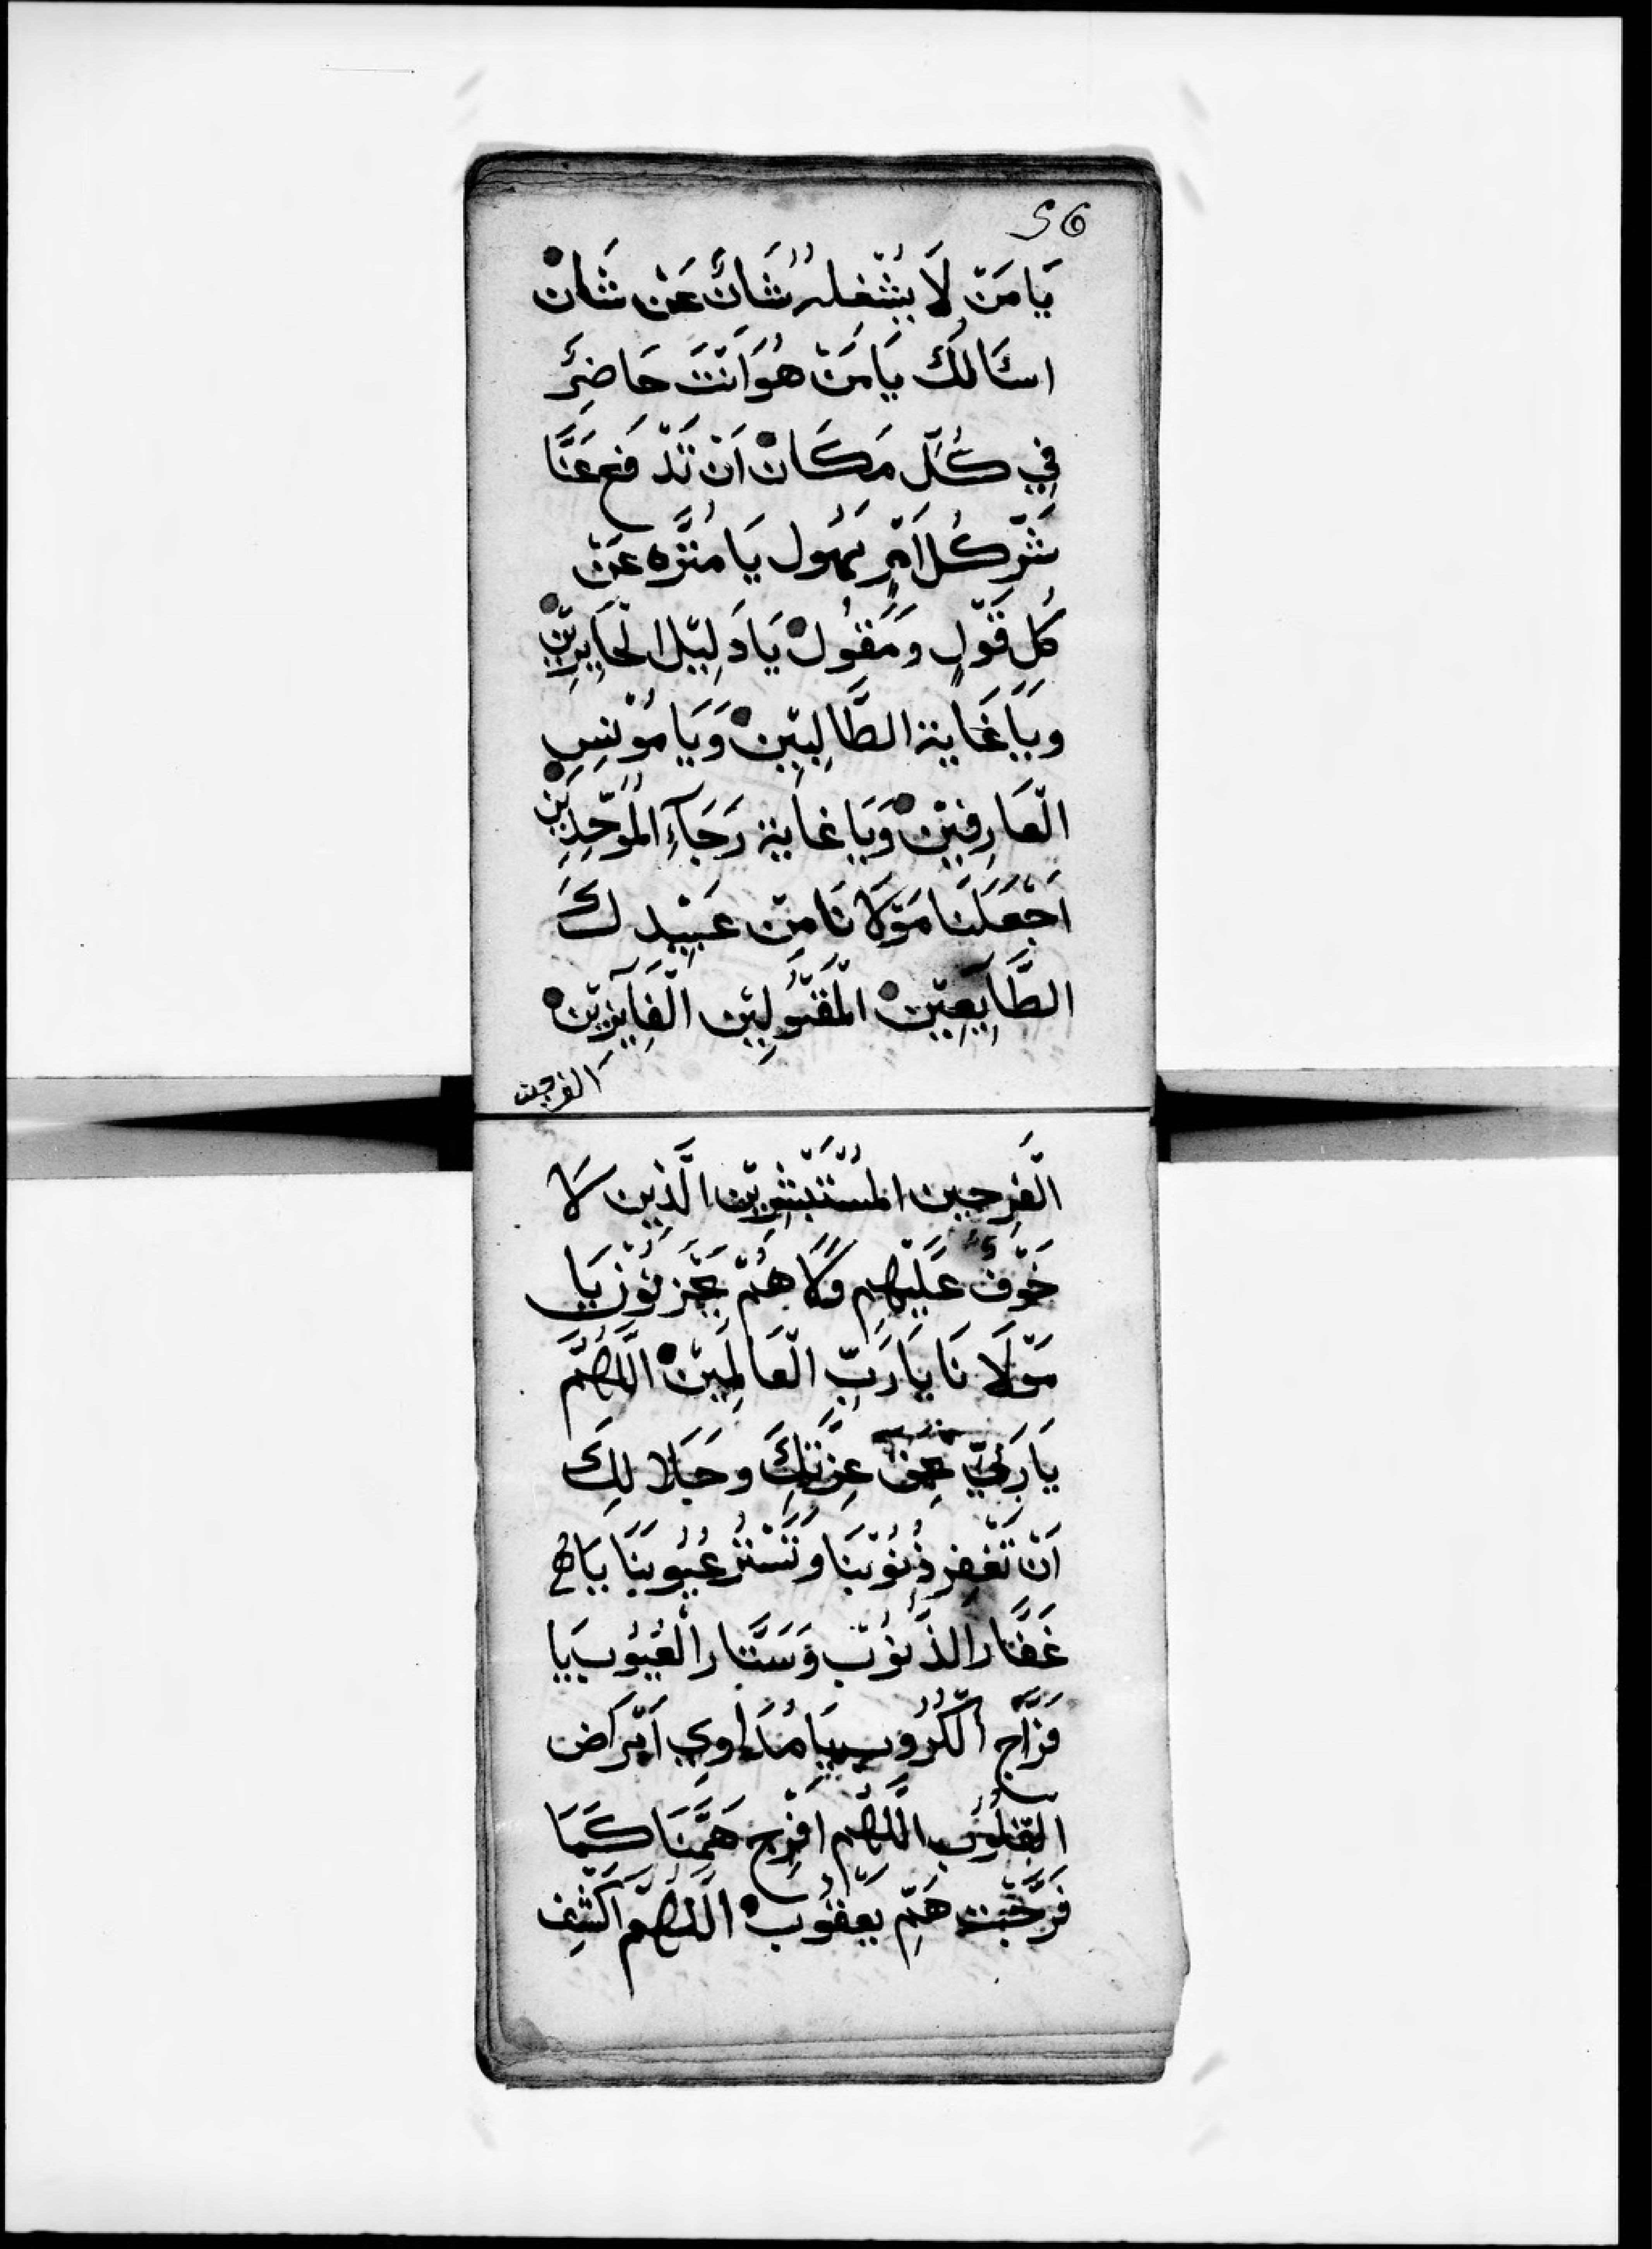 56
يَا مَنْ لَا يُشْغِلُهُ شَانٌ عَنْ شَانْ
اسئَالُكَ يَا مَنْ هُوَ اَنْتَ حَاضِرٌ
فِي كُلّ مَكَانْ اَنْ تَدْفَع عَنَّا
شَرِّ كُل اَمْرٍ يَهُول يَا مُنَزَّه عَنْ
كُلِ قَوْلٍ وَمَقُولْ يَا دَلِيْل الْحَايِرِيْن
وَيَا غَاية الطَّالِبِيْنْ وَيَا مُوْنِسِ
الْعَارِفِيْنْ وَيَا غاية رَجَآءِ الْمُوَحِّدِيْن
اَجْعَلَنَا مَوْلَانَا مِنْ عَبِيْدِكَ
الطَّايِعِيْنْ الْمَقْبُولِيْن الْفَآيِزِيْنْ
الفرحين
الْفَرِحِين المُسْتَبْشِرِيْن الَّذِين لَا
خَوْفٌ عَلَيْهِم وَلَا هُمْ يَحْزَنُوْن يَا
مَوْلَانَا يَا رَبِّ الْعَالَمِيْنْ اللَّهُمَّ
يَا رَبِّيْ عِزَّتِكَ وجَلَالِكَ
اَنْ تَغْفِر ذُنُوْبَنَا وَتَسْتُر عُيُوبَنَا يَا
غَفَّار الذُنُوْب وَسَتَّار الْعُيُوب يَا
فَرَّاج الْكُرُوب يَا مُدَاوِي اَمْرَاض
القُلُوب اللَّهُم افْرِج هَمَّنَا كَمَا
فَرَّجْت هَمِّ يَعْقُوبْ اللَّهُمَّ اَكْشِف